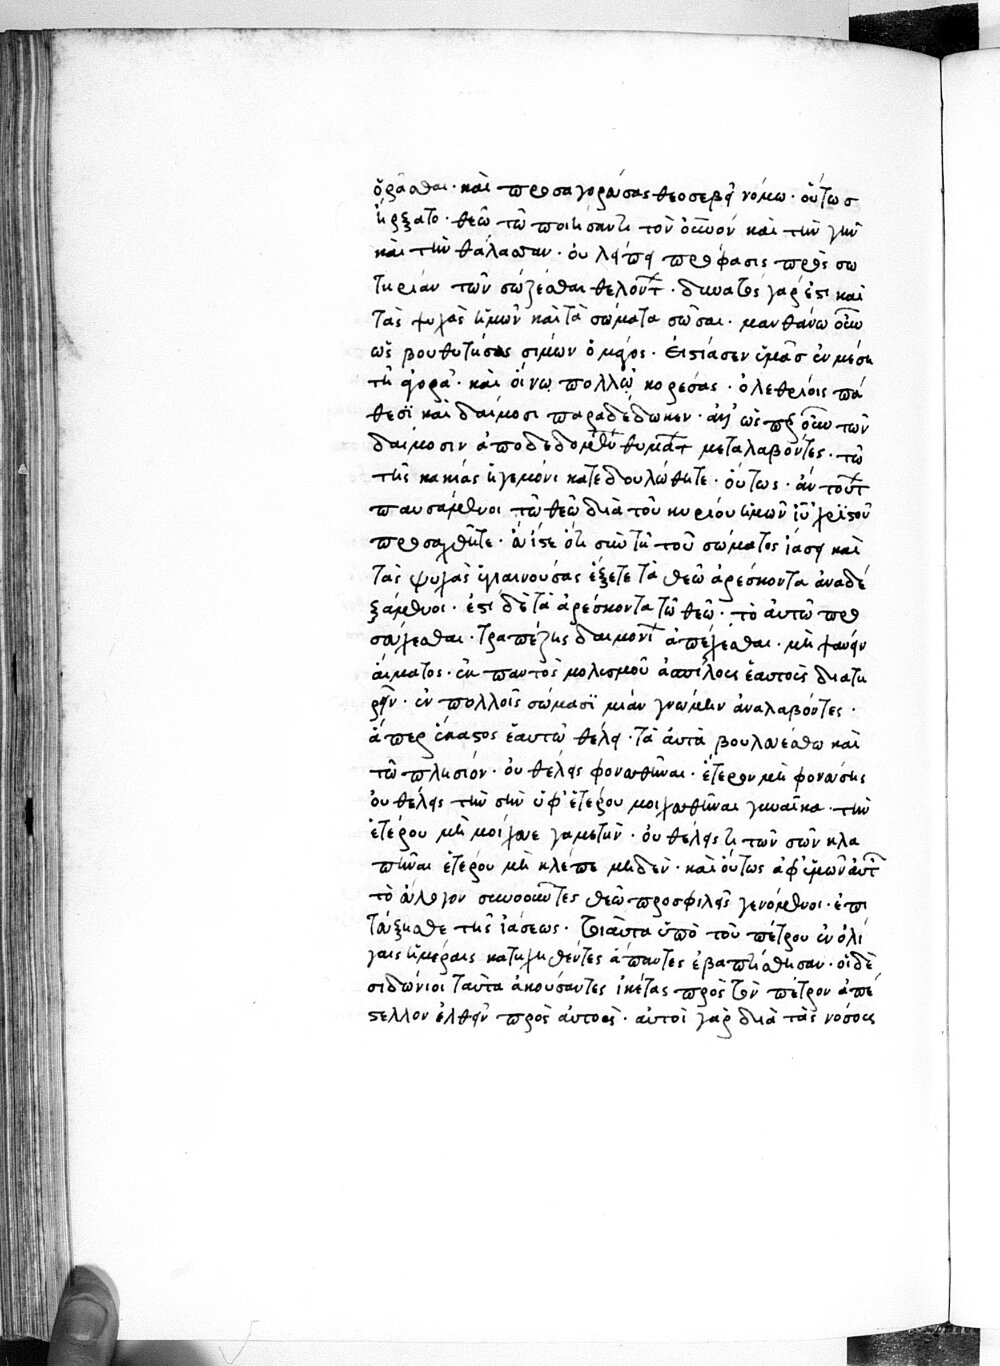 ὁρᾶσθαι· καὶ προσαγορεύσας θεοσεβεῖ νόμω· οὕτως
ἤρξατο· θεῶ τῶ ποιήσαντι τὸν οὐρανόν καὶ τὴν γῆν
καὶ τὴν θάλασσαν· οὐ λείπει πρόφασις πρὸς σω
τηρίαν τῶν σώζεσθαι θελόντων· δυνατὸς γάρ ἐστι καὶ
τὰς ψυχὰς ἡμῶν καὶ τὰ σώματα σῶσαι· μανθάνω οὖν
ὡς βουθυτήσας σίμων ὁ μάγος· εἱστίασεν ὑμᾶς ἐν μέση
τῆ ἀγορᾶ· καὶ οἴνω πολλῶ κορέσας· ὀλεθρίοις πά
θεσϊ καὶ δαίμοσι παραδέδωκεν· ἀλλ' ὡς περ οὖν τῶν
δαίμοσιν ἀποδεδομένων θυμάτων μεταλαβόντες· τῶ
τῆς κακίας ἡγεμόνι κατεδουλώθητε· οὕτως· ἂν τούτων
παυσάμενοι τῶ θεῶ διὰ τοῦ κυρίου ἡμῶν ἰυ χριϊστοῦ
προσέλθητε· ἂν ἴστε ὅτι σὺν τῆ τοῦ σώματος ἰάσει καὶ
τὰς ψυχὰς ὑγιαινούσας ἕξετε τὰ θεῶ ἀρέσκοντα ἀναδε
ξάμενοι· ἐστὶ δὲ τὰ ἀρέσκοντα τῶ θεῶ· τὸ αὐτῶ προ
σεύχεσθαι· τραπέζης δαιμόνων ἀπέχεσθαι· μὴ ψαύειν
αἵματος· ἐκ παντὸς μολυσμοῦ ἀσπίλους ἑαυτοὺς διατη
ρεῖν· ἐν πολλοῖς σώμασϊ μίαν γνώμην ἀναλαβόντες·
ἅπερ ἕκαστος ἑαυτῶ θέλει· τὰ αὐτὰ βουλευέσθω καὶ
τῶ πλησιόν· οὐ θέλεις φονευθῆναι· ἕτερον μὴ φονεύσης
οὐ θέλεις τὴν σὴν ὑφ' ἑτέρου μοιχευθῆναι γυναῖκα· τὴν
ἑτέρου μὴ μοίχευε γαμετὴν· οὐ θέλεις τι τῶν σῶν κλα
πῆναι ἑτέρου μὴ κλέπτε μηδὲν· καὶ οὕτως ἀφ' ὑμῶν αὐτῶν
τὸ εὔλογον συνοοῦντες θεῶ προσφιλεῖς γενόμενοι· ἐπι
τεύξησθε τῆς ἰάσεως· τοιαῦτα ὑπὸ τοῦ πέτρου ἐν ὀλί
γαις ἡμέραις κατηχηθέντες ἅπαντες ἐβαπτίσθησαν· οἱ δὲ
σιδώνιοι ταῦτα ἀκούσαντες ἱκέτας πρὸς τὸν πέτρον ἀπέ
στελλον ἐλθεῖν πρὸς αὐτοὺς· αὐτοὶ γὰρ διὰ τὰς νόσους